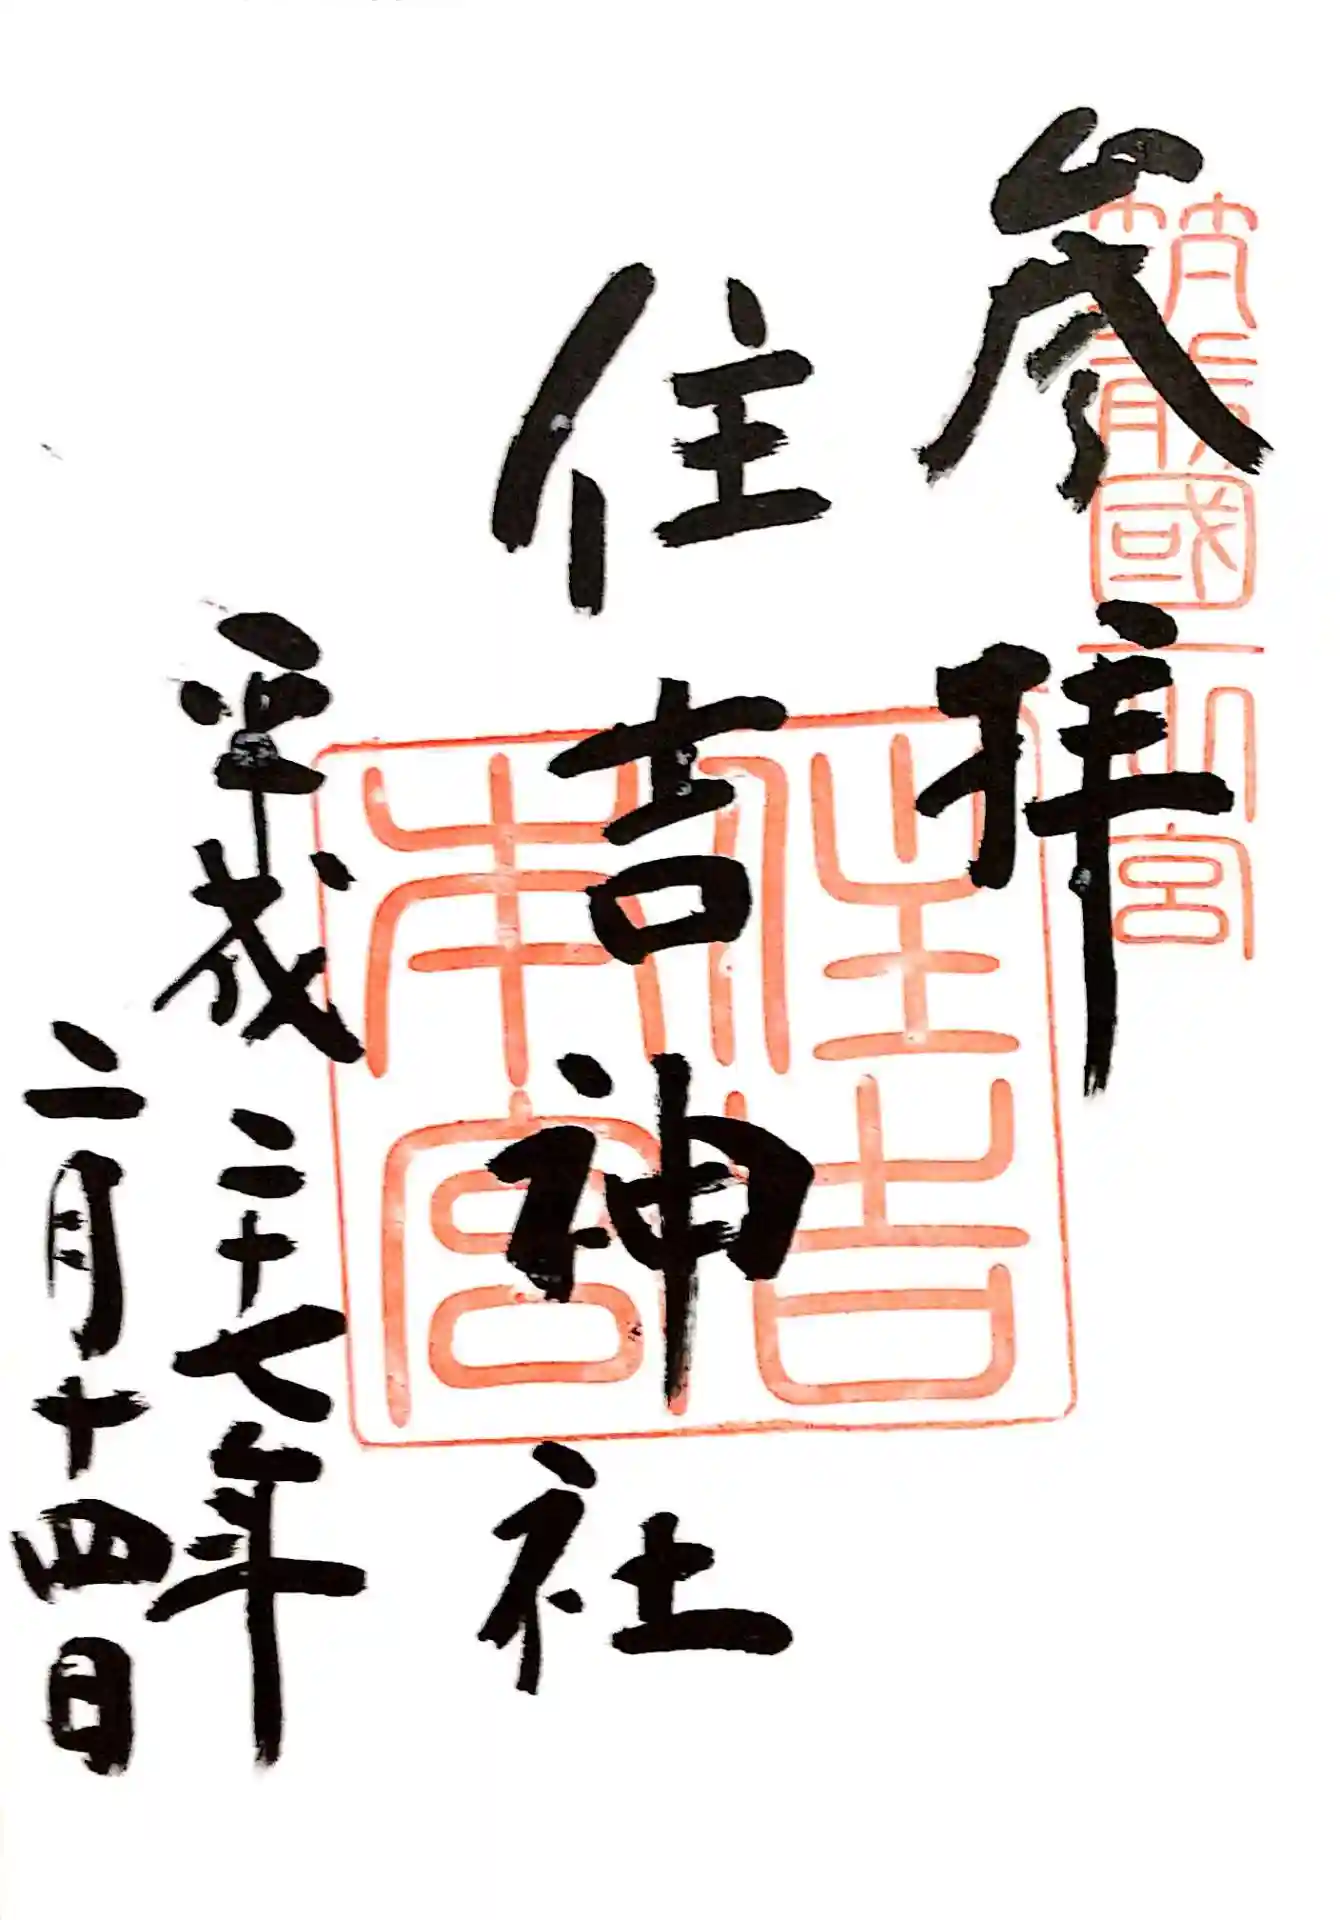 参拝
筑前國一之宮
住吉神社
住吉
本宮
平成二十七年
二月十四日